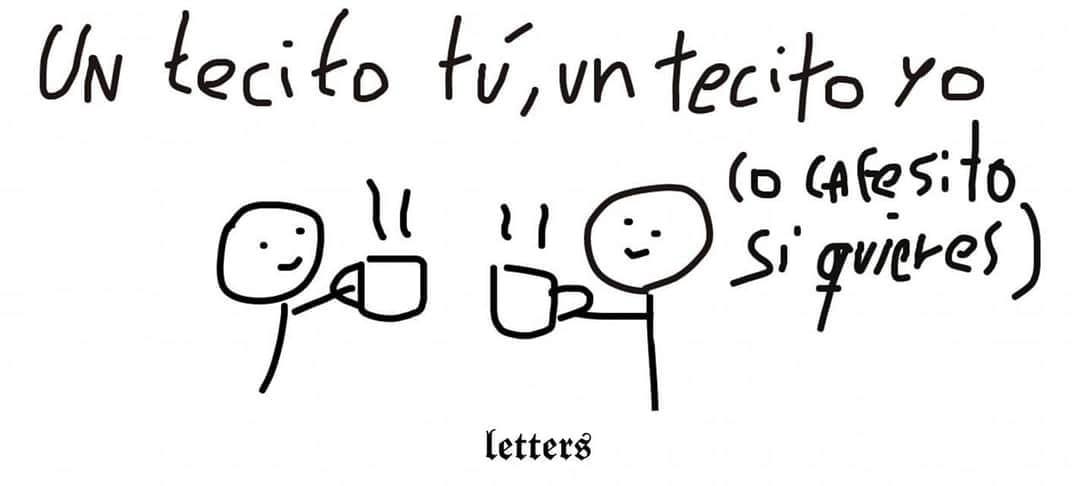 UN tecito tú, un tecito yo
(o CAFesito
si quieres)
letters